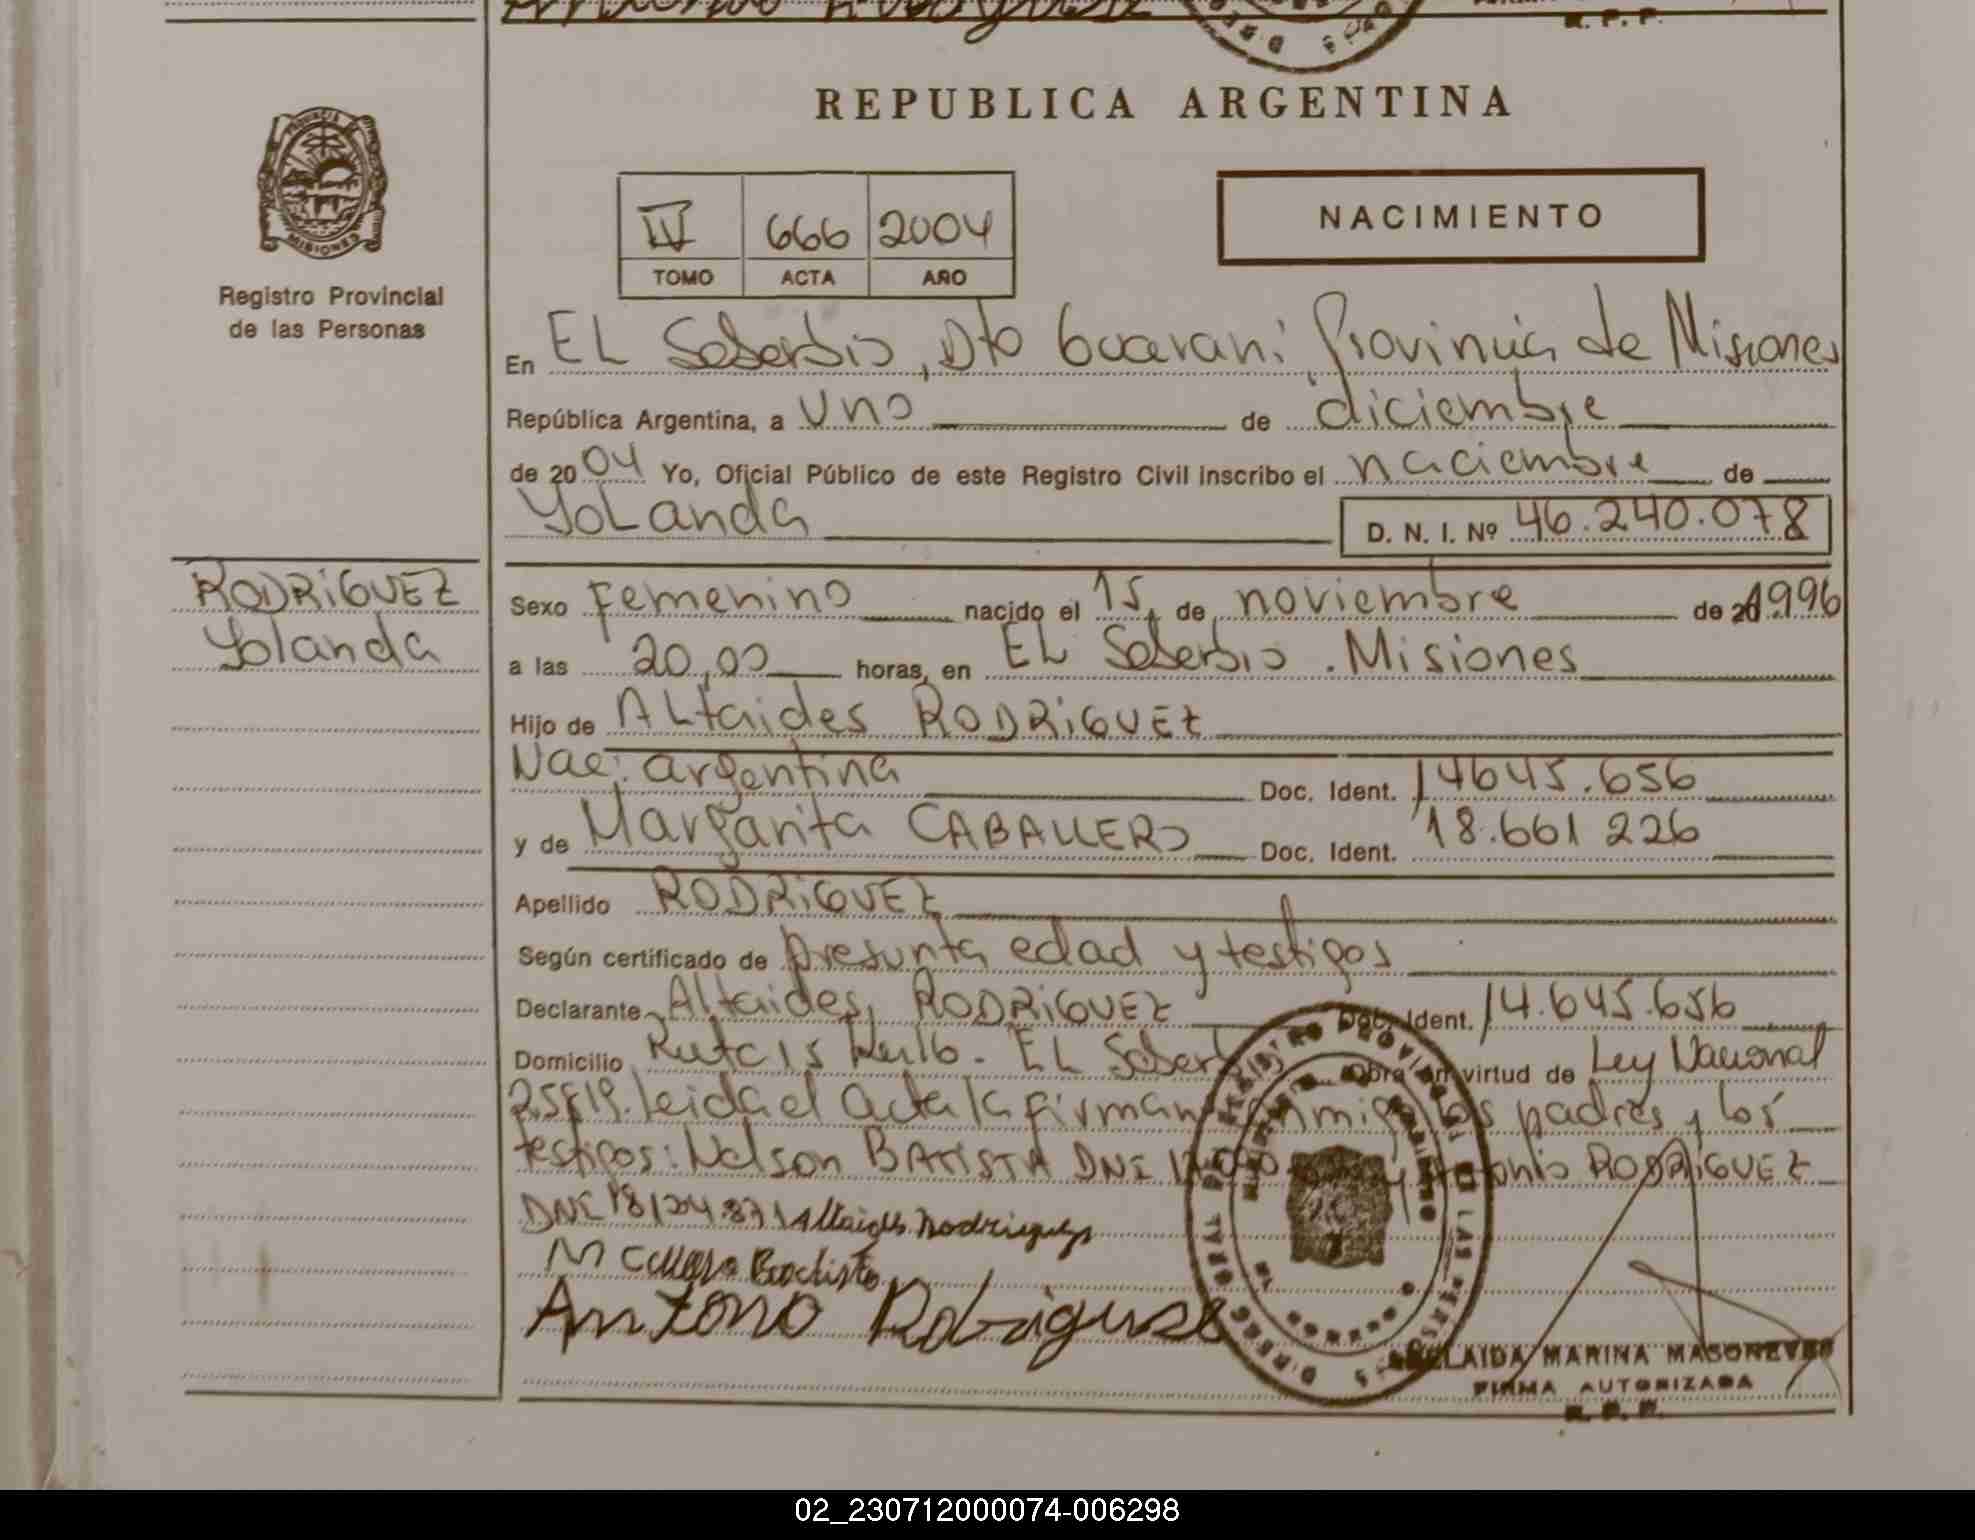 REPUBLICA ARGENTINA
PROVINCIA DE
MISIONES
Registro Provincial
de las Personas
IV 666 2004
TOMO ACTA AÑO
NACIMIENTO
En EL Soberbio, Dto Guarani Provincia de Misiones
República Argentina, a uno de diciembre
de 2004 Yo, Oficial Público de este Registro Civil inscribo el naciembre de
YoLanda D. N. I. Nº 46.240.078
RODRiGUEZ
Yolanda
Sexo Femenino nacido el 15 de noviembre de 20 1996
a las 20,00 horas, en EL Soberbio . Misiones
Hijo de ALtaides RODRiGUEZ
Nac: argentina Doc. Ident. 14645.656
y de Margarita CABALLERO Doc. Ident. 18.661 226
Apellido RODRiGUEZ
Según certificado de presunta edad y testigos
Declarante Altaides, RODRiGUEZ Doc. Ident. 14.645.656
Domicilio Ruta 15 - EL Soberbio Obra en virtud de Ley Nacional
25819. leida el acta la firman conmigo los padres y los
testigos: Nelson BATISTA DNI y Antonio RODRiGUEZ
DNI 18/204.871 Altaides Rodriguez
M Batista
Antono Rodriguse
ADELAIDA MARINA MASONEVES
FIRMA AUTORIZADA
R. P. P.
02_230712000074-006298